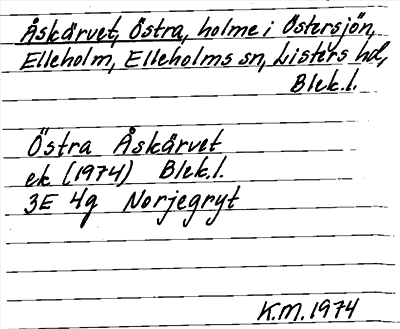 Åskärvet, Östra, holme i Östersjön,
Elleholm, Elleholms sn, Listers hd,
Blek.l.
Östra Åskärvet
ek (1974) Blek.l.
3E 4g Norjegryt
K.M. 1974